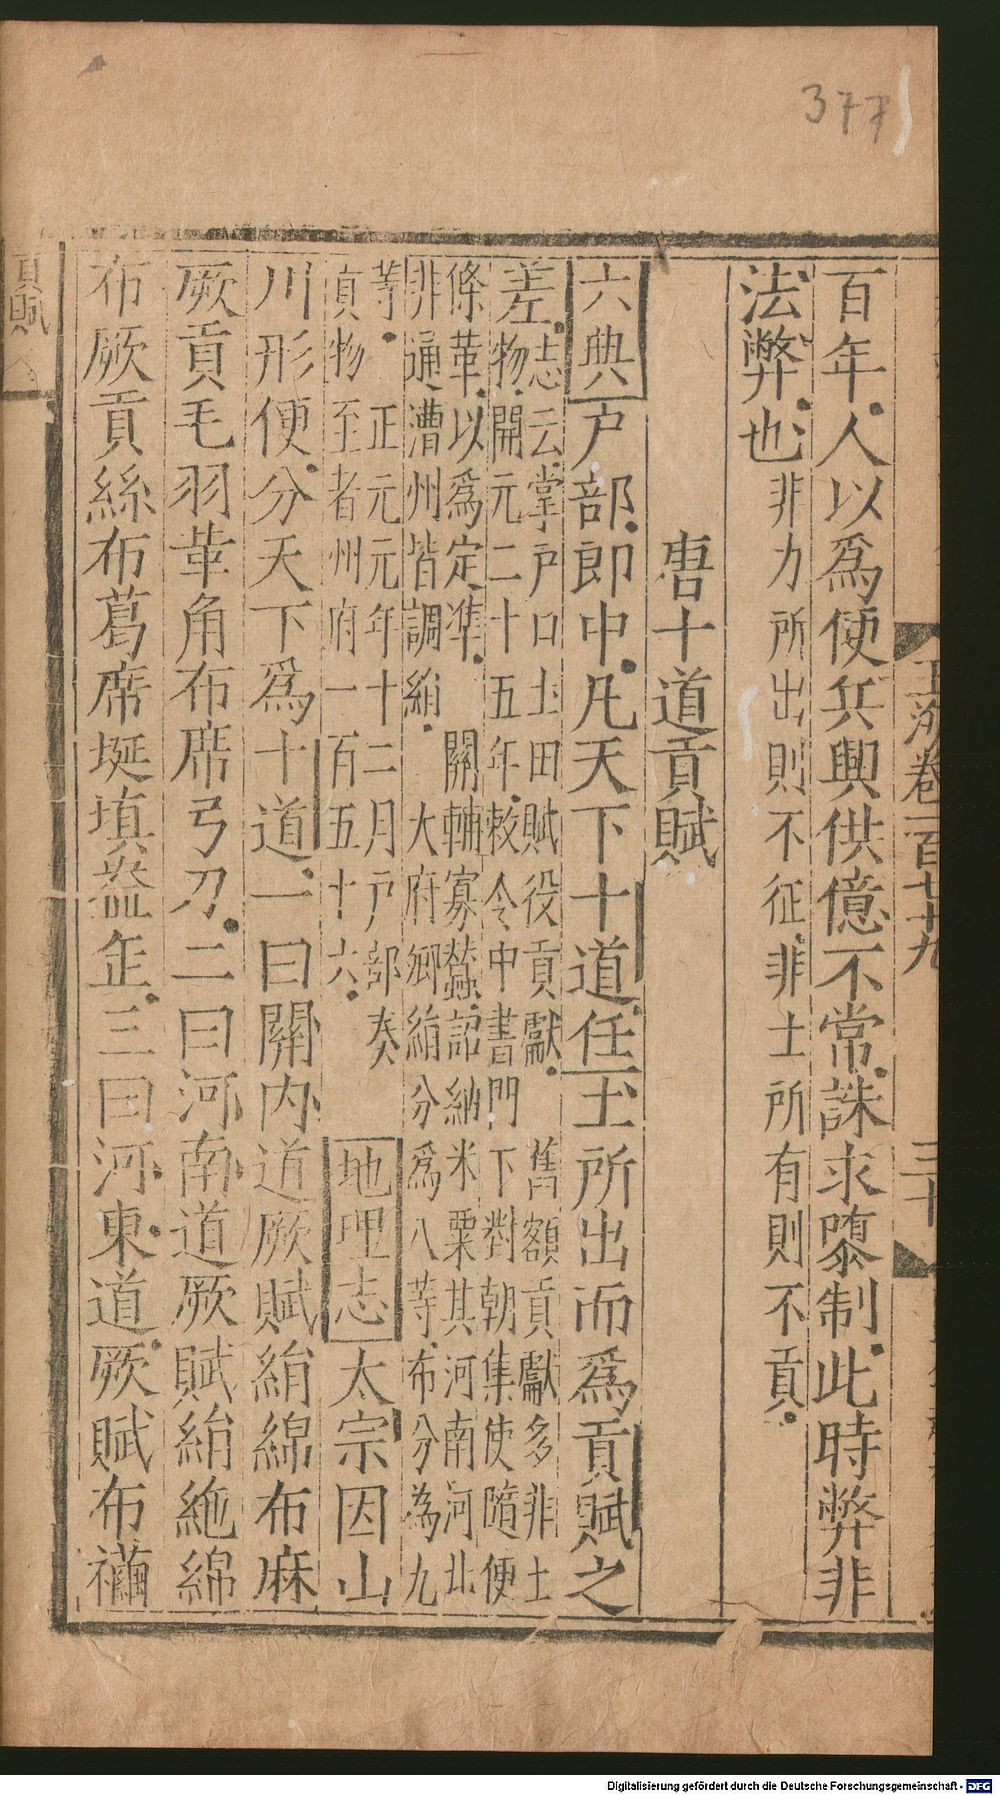 377
百年人以爲便兵興供億不常誅求隳制此時弊非
法弊也非力所出則不征非土所有則不貢
唐十道貢賦
六典戶部郎中凡天下十道任土所出而爲貢賦之
差志云掌戶口土田賦役貢獻 舊額貢獻多非土
物開元二十五年敕令中書門下對朝集使隨便
條革以爲定準 關輔寡蠶詔納米粟其河南河北
非通漕州皆調絹 大府鄉絹分爲八等布分為九
等 正元元年十二月戶部奏
貢物至者州府一百五十六
地理志太宗因山
川形便分天下爲十道一曰關内道厥賦絹綿布麻
厥貢毛羽革角布席弓刀二曰河南道厥賦絹絁綿
布厥貢絲布葛席埏埴盎缶三曰河東道厥賦布襺
貢賦
玉海卷一百七十九
三十
Digitalisierung gefördert durch die Deutsche Forschungsgemeinschaft - DFG